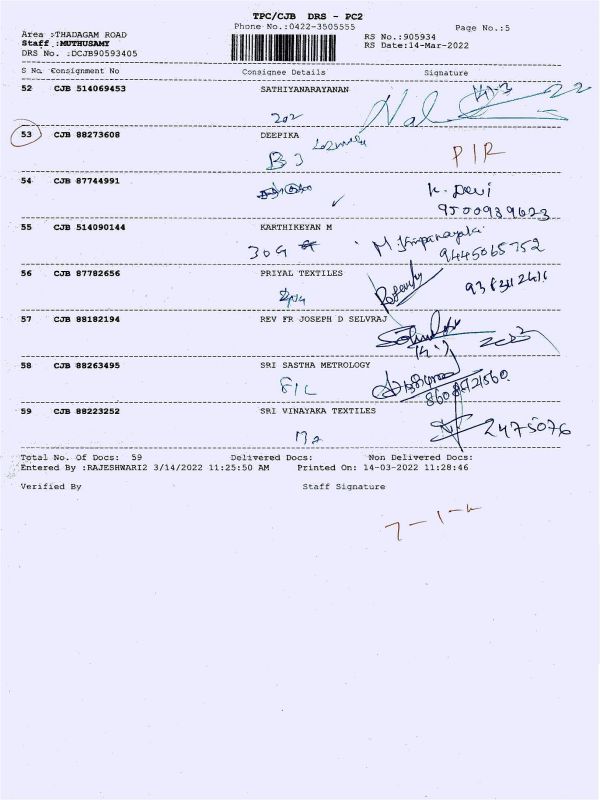 TPC/CJB DRS - PC2
Phone No.:0422-3505555
Page No.:5
Area :THADAGAM ROAD
RS No.:905934
Staff :MUTHUSAMY
RS Date:14-Mar-2022
DRS No. :DCJB90593405
S No. Consignment No Consignee Details Signature
52 CJB 514069453 SATHIYANARAYANAN
202
53 CJB 88273608 DEEPIKA
P/R
54 CJB 87744991
K. Devi
55 CJB 514090144 KARTHIKEYAN M
309
9445065752
56 CJB 87782656 PRIYAL TEXTILES
57 CJB 88182194 REV FR JOSEPH D SELVRAJ
58 CJB 88263495 SRI SASTHA METROLOGY
59 CJB 88223252 SRI VINAYAKA TEXTILES
2475076
Total No. Of Docs: 59 Delivered Docs: Non Delivered Docs:
Entered By :RAJESHWARI2 3/14/2022 11:25:50 AM Printed On: 14-03-2022 11:28:46
Verified By Staff Signature